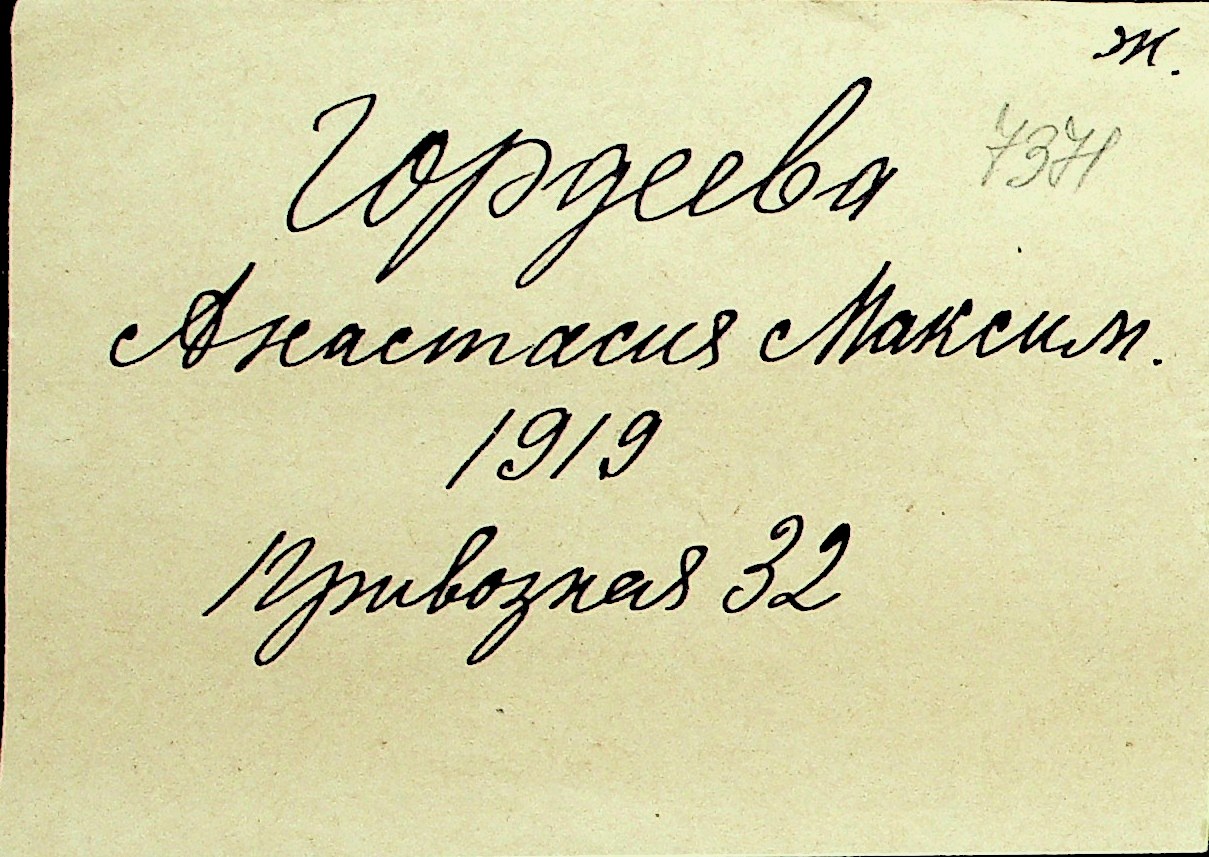 ж.
Гордеева
Анастасия Максим.
1919
Привозная 32